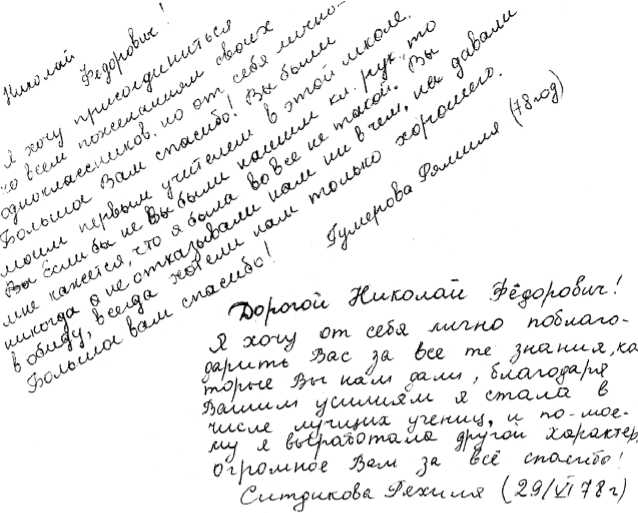 Николай Фёдорович!
Я хочу присоединиться
ко всем пожеланиям своих
одноклассников. но от себя лично-
Большое Вам спасибо! Вы были
моим первым учителем в этой школе.
Вы Если бы не Вы были нашим кл. рук, то
мне кажется, что я была бы вовсе не такой. Вы
никогда о не отказывали нам ни в чем, не давали
в обиду, всегда хотели нам только хорошего.
Большое вам спасибо!
Гумерова Рамиля (78 год)
Дорогой Николай Фёдорович!
Я хочу от себя лично поблаго-
дарить Вас за все те знания, ко
торые Вы нам дали, благодаря
Вашим усилиям я стала в
числе лучших учениц, и по-мое-
му я выработала другой характер,
огромное Вам за всё спасибо!
Ситдикова Рахиля (29/VI 78 г)